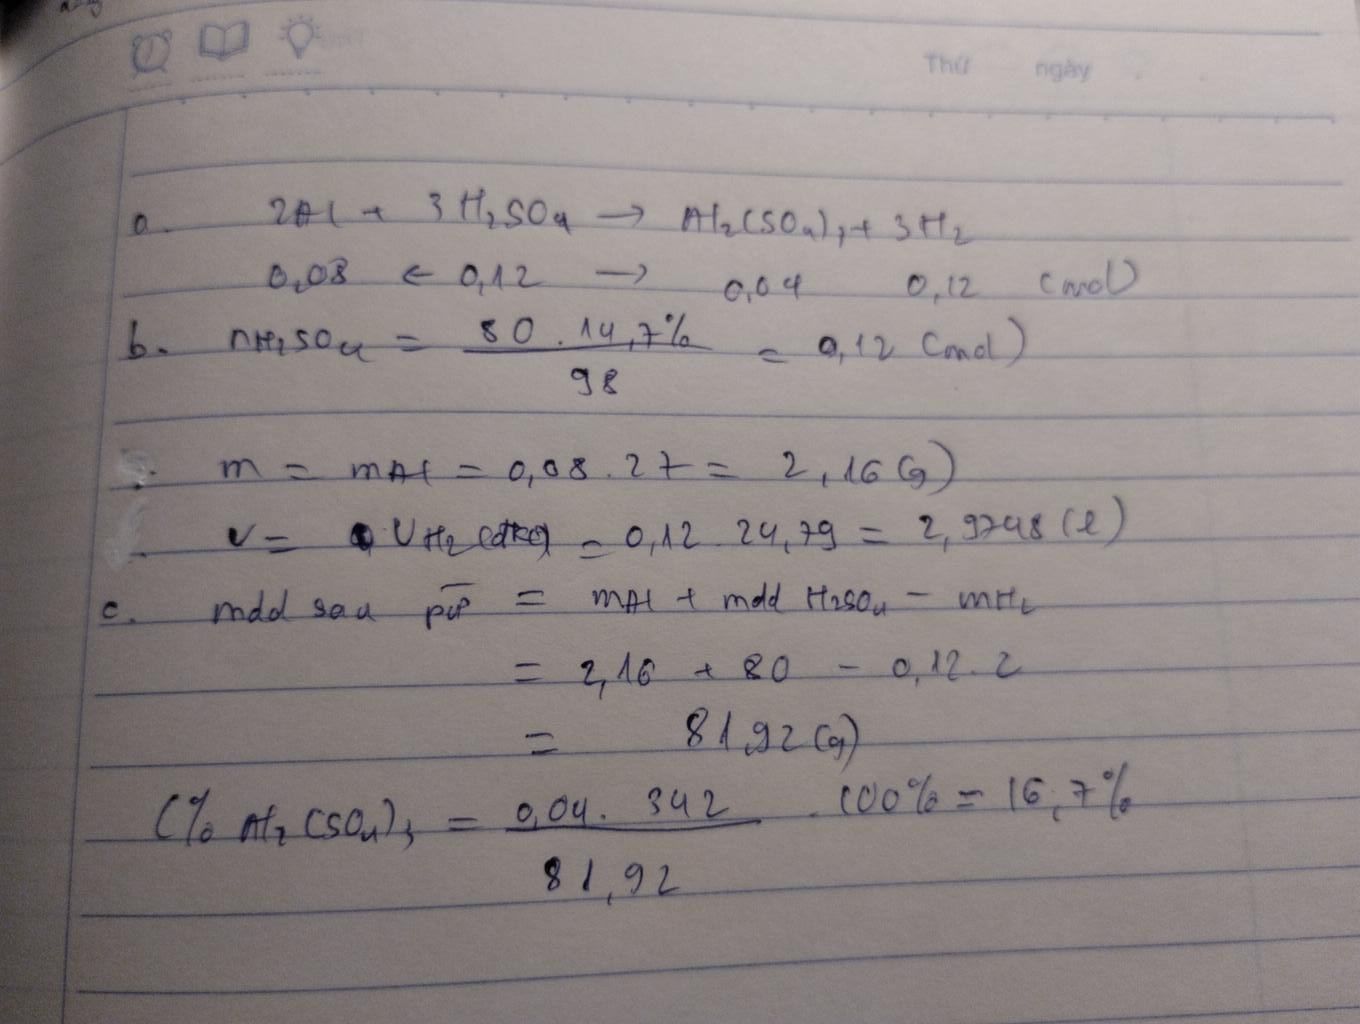 Thứ ngày
a. 2Al + 3H₂SO₄ → Al₂(SO₄)₃ + 3H₂
0,08 ← 0,12 → 0,04 0,12 (mol)
b. nH₂SO₄ = 80 . 14,7% / 98 = 0,12 (mol)
m = mAl = 0,08 . 27 = 2,16 (g)
V = VH₂ (đkc) = 0,12 . 24,79 = 2,9748 (l)
c. mdd sau pứ = mAl + mdd H₂SO₄ - mH₂
= 2,16 + 80 - 0,12 . 2
= 81,92 (g)
C% Al₂(SO₄)₃ = 0,04 . 342 / 81,92 . 100% = 16,7%